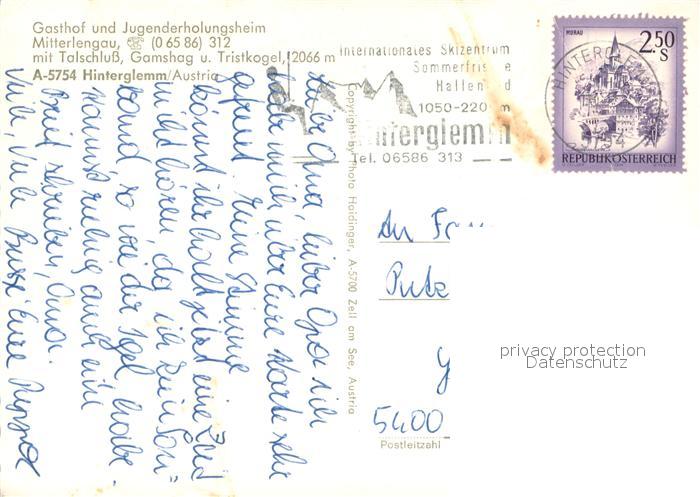 Gasthof und Jugenderholungsheim
Mitterlengau, ☏ (0 65 86) 312
mit Talschluß, Gamshag u. Tristkogel, 2066 m
A-5754 Hinterglemm/Austria
Internationales Skizentrum
Sommerfrische
Hallenbad
1050-220 m
Hinterglemm
Tel. 06586 313
MURAU
2.50
S
REPUBLIK ÖSTERREICH
HINTERGLEMM
5754
Copyright by Photo Haidinger, A-5700 Zell am See, Austria
Liebe Oma, lieber Opa! Ich
habe mich über Eure Karte sehr
gefreut. Meine Stimme
könnt ihr halt jetzt eine Zeit
nicht hören, da ich keinen
Mund, so wie der Igel, habe.
Kannst ruhig auch ein
Brief schreiben, Oma.
Viele, viele Bussi Eure
An Fr
Putz
5400
Postleitzahl
privacy protection
Datenschutz